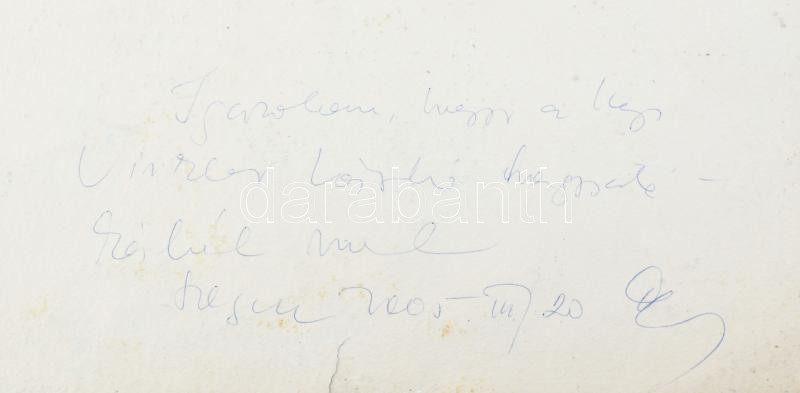 Igazolom, hogy a kép
Vinkler László hagyaté-
kából való
Szeged 2005. III. 20
darabanth